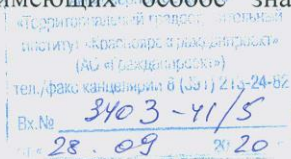 имеющих особое зна
«Территориальный градостроительный
институт «Красноярскгражданпроект»
(АО «Гражданпроект»)
тел./факс канцелярии 8 (391) 213-24-82
Вх.№ 3403-41/5
28. 09 2020